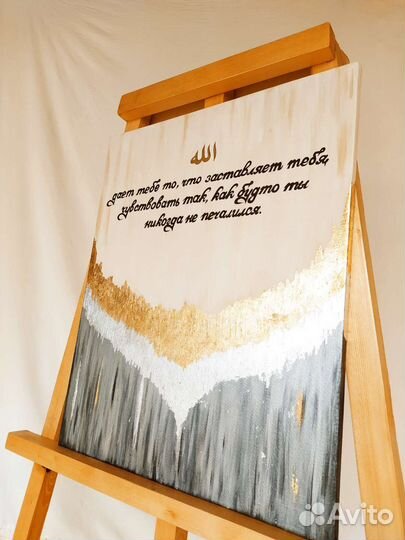 الله
дает тебе то, что заставляет тебя,
чувствовать так, как будто ты
никогда не печалился.
Avito